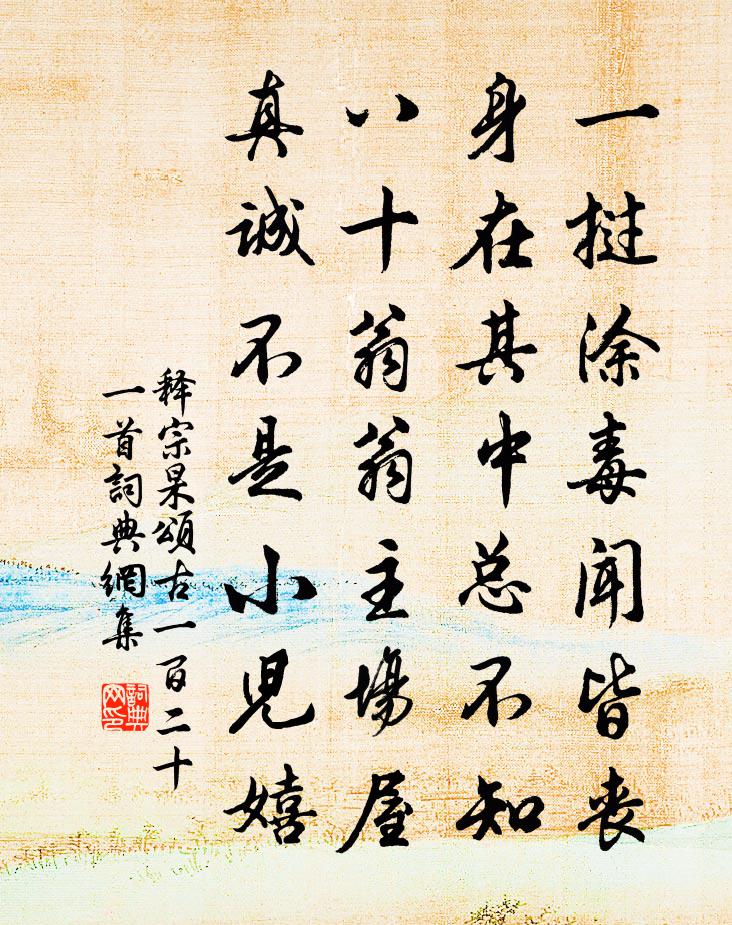 一挝涂毒闻皆丧
身在其中总不知
八十翁翁主場屋
真诚不是小児嬉
释宗杲頌古一百二十
一首詞典網集
詞典
网印